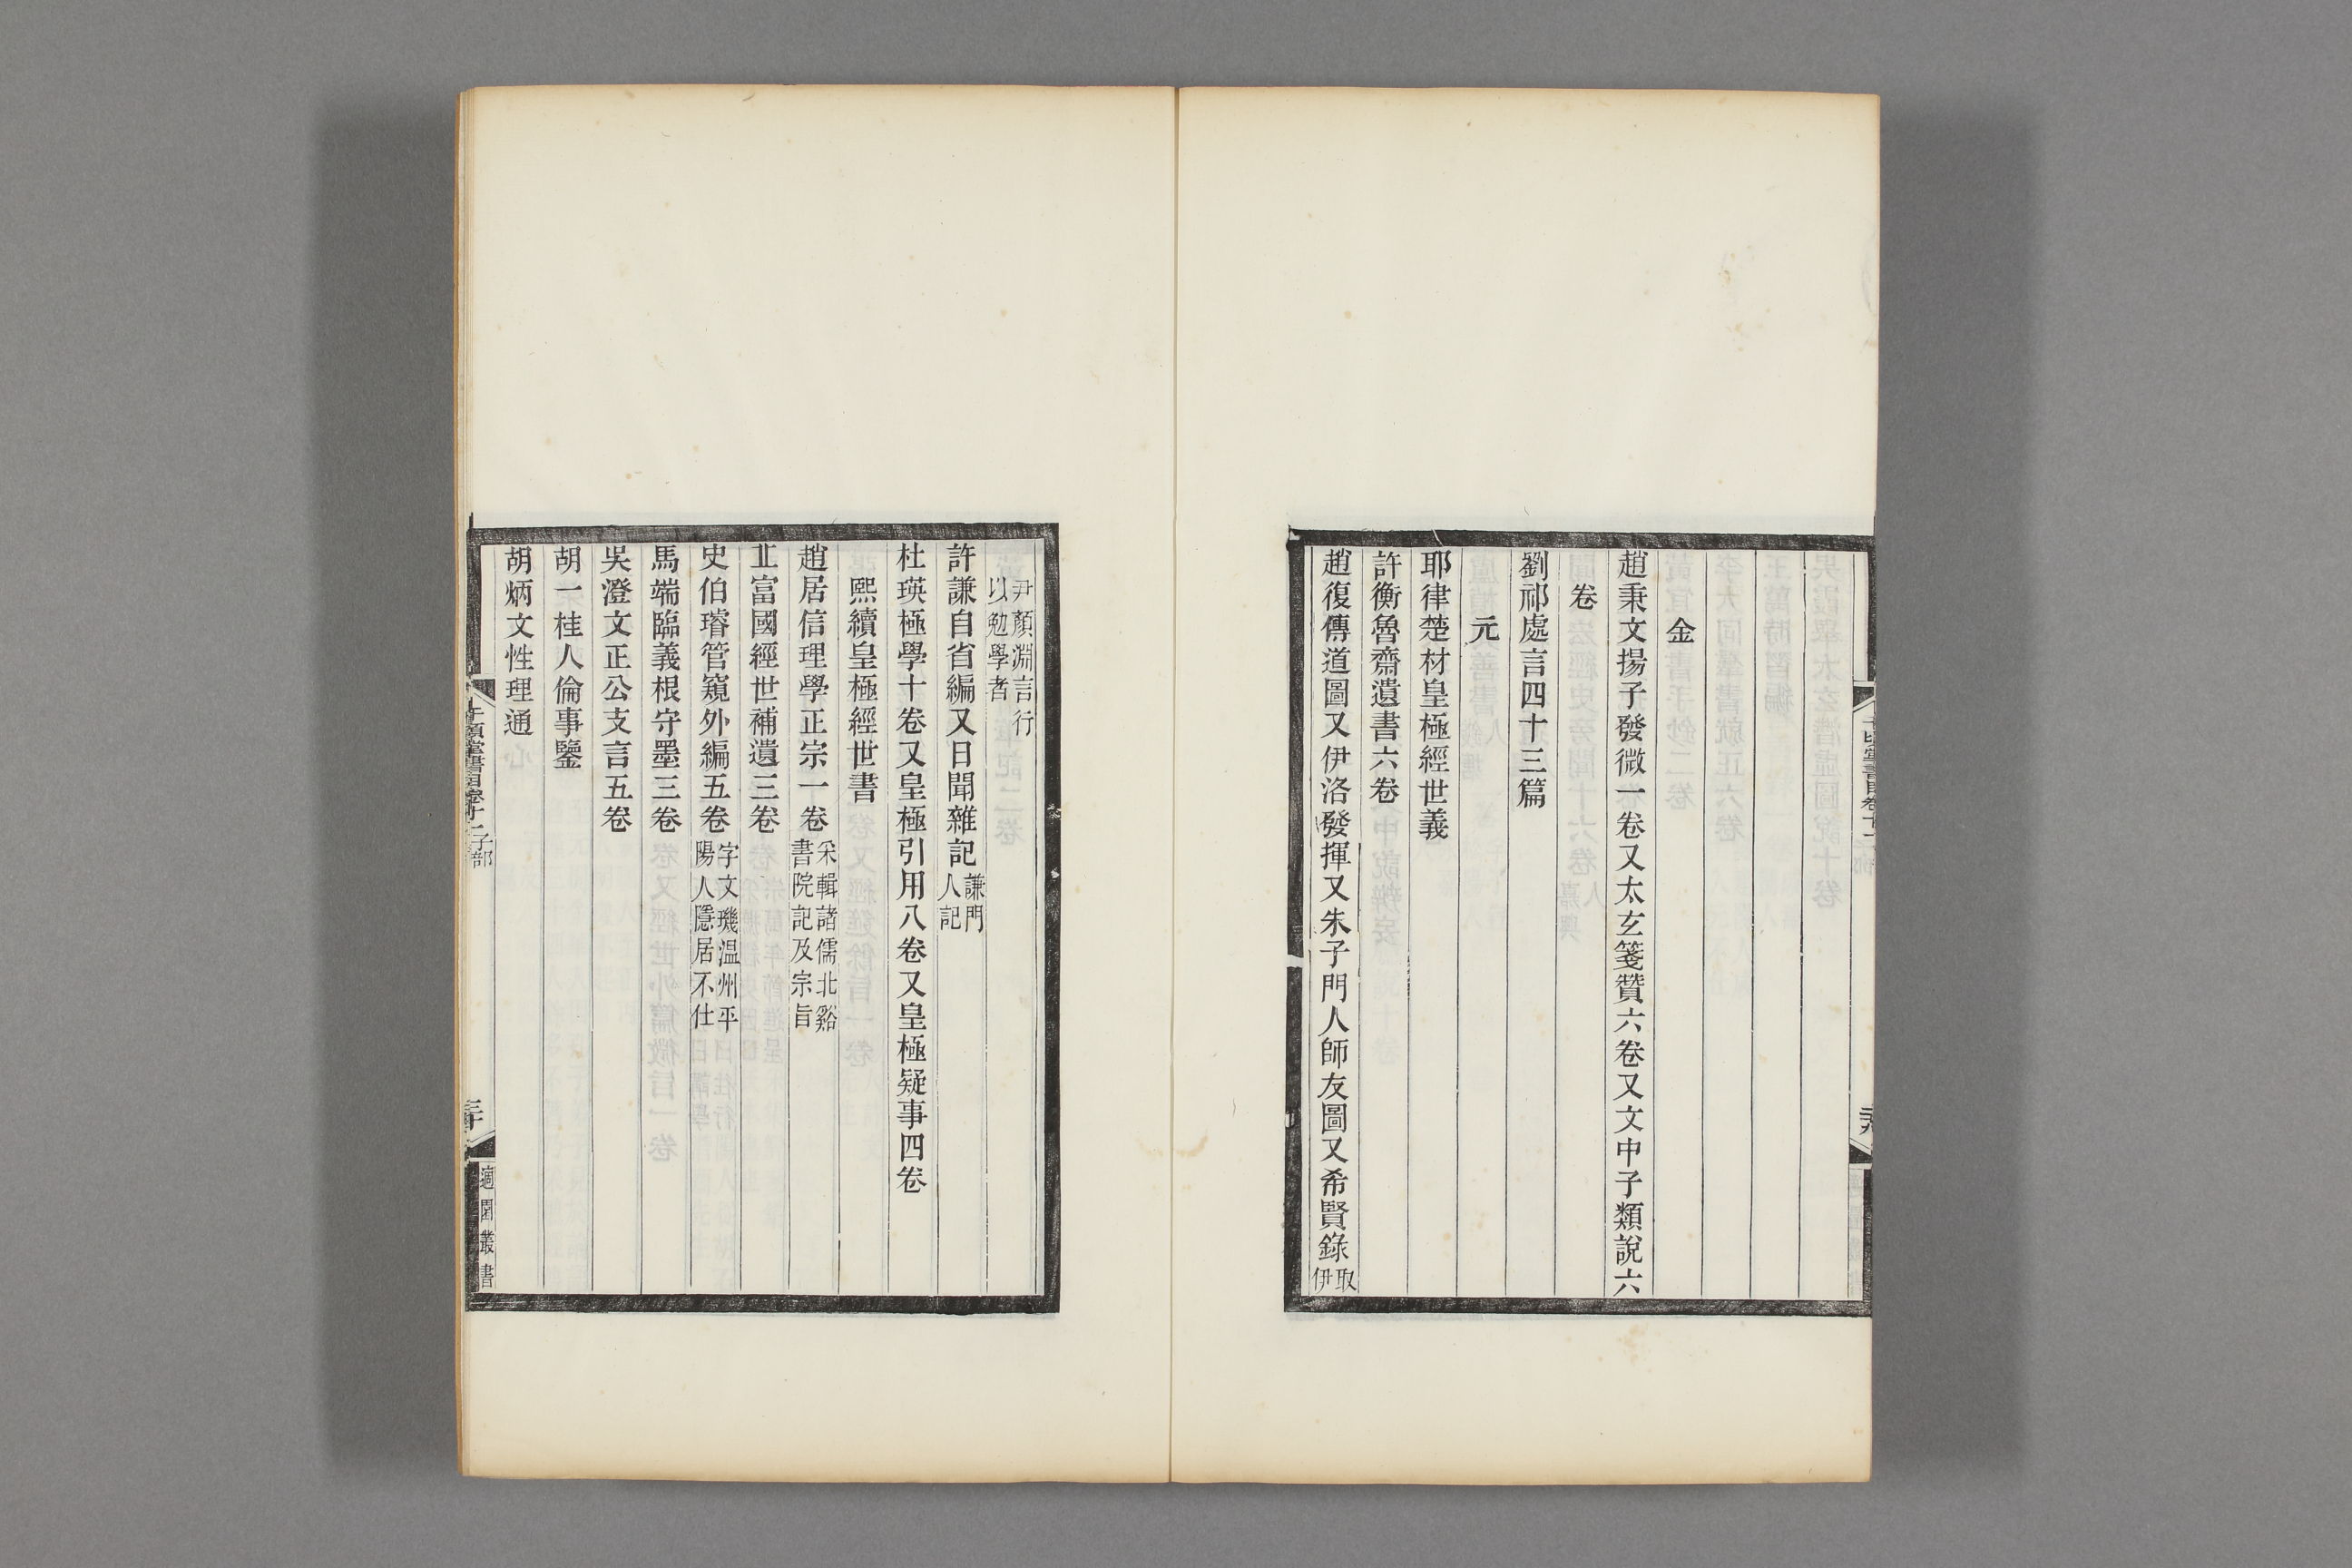 金
趙秉文揚子發微一卷又太玄箋贊六卷又文中子類說六
卷
劉祁處言四十三篇
元
耶律楚材皇極經世義
許衡魯齋遺書六卷
趙復傳道圖又伊洛發揮又朱子門人師友圖又希賢錄取
伊
尹顏淵言行
以勉學者
許謙自省編又日聞雜記謙門
人記
杜瑛極學十卷又皇極引用八卷又皇極疑事四卷
熙續皇極經世書
趙居信理學正宗一卷采輯諸儒北谿
書院記及宗旨
㐀富國經世補遺三卷
史伯璿管窺外編五卷字文璣温州平
陽人隱居不仕
馬端臨義根守墨三卷
吳澄文正公支言五卷
胡一桂人倫事鑒
胡炳文性理通
千頃堂書目卷十一子部
三十
適園叢書